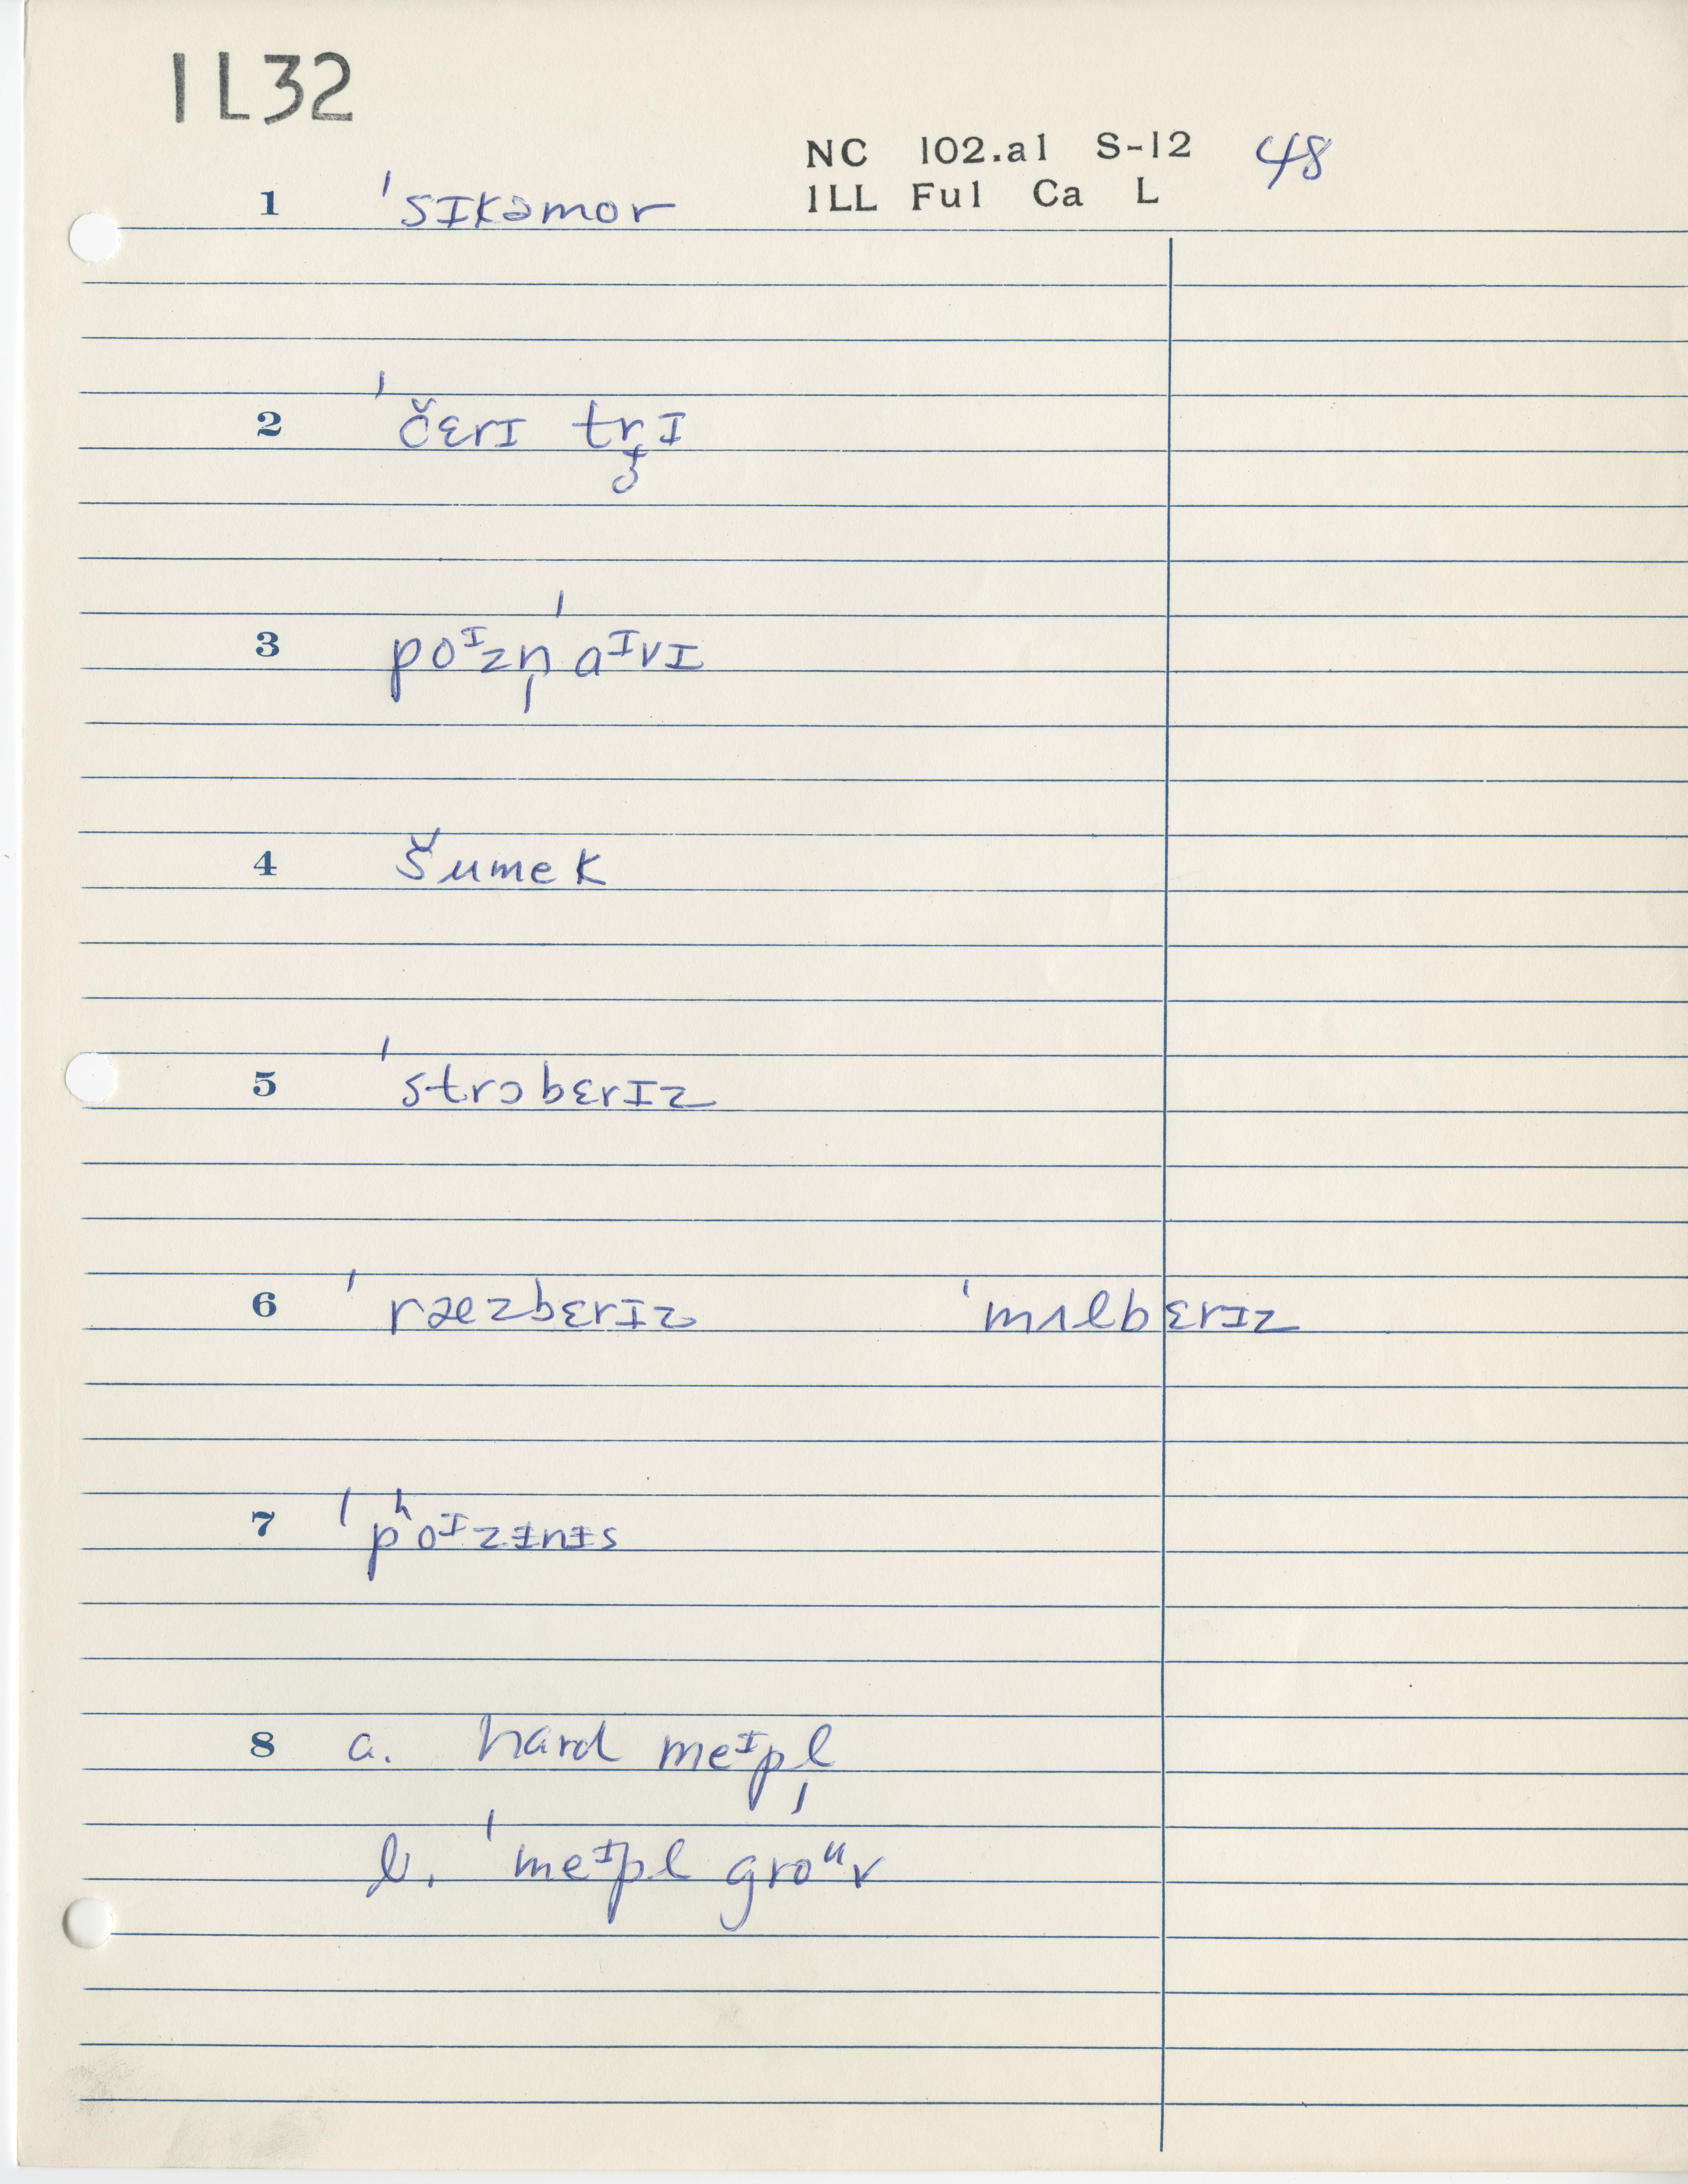 1L32
NC 102.a1 S-12 48
1LL Ful Ca L
1 ˈsɪkəmor
2 ˈčɛrɪ trɪ̧
3 poᶦzn̩ ˈaᶦvɪ
4 šumek
5 ˈstrɔbɛrɪz
6 ˈræzbɛrɪz ˈmʌlbɛrɪz
7 ˈpʰoᶦzɨnɨs
8 a. hard meᶦpl̩
b. ˈmeᶦpl groᵘv